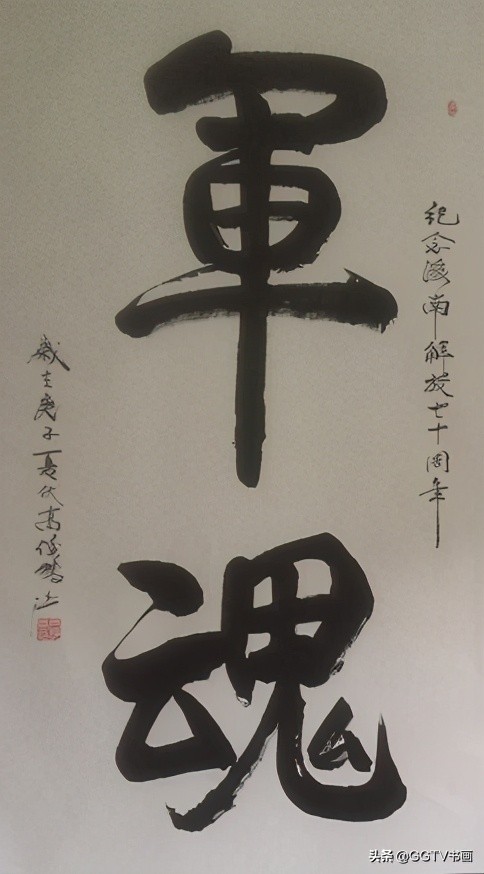 纪念海南解放七十周年
軍魂
歲在庚子夏伏高俊
头条 @GGTV书画